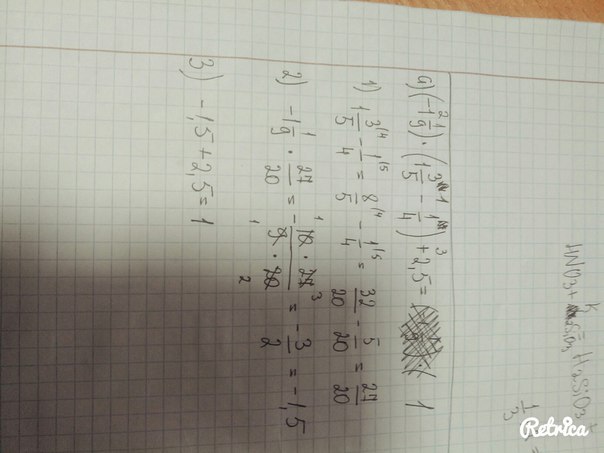 a) (-1 1/9) · (1 3/5 - 1/4) + 2,5 = 1
1) 1 3/5 - 1/4 = 8/5 - 1/4 = 32/20 - 5/20 = 27/20
2) -1 1/9 · 27/20 = - 10 · 27 / 9 · 20 = - 3/2 = -1,5
3) -1,5 + 2,5 = 1
HNO3 +
1/3 =
Retrica